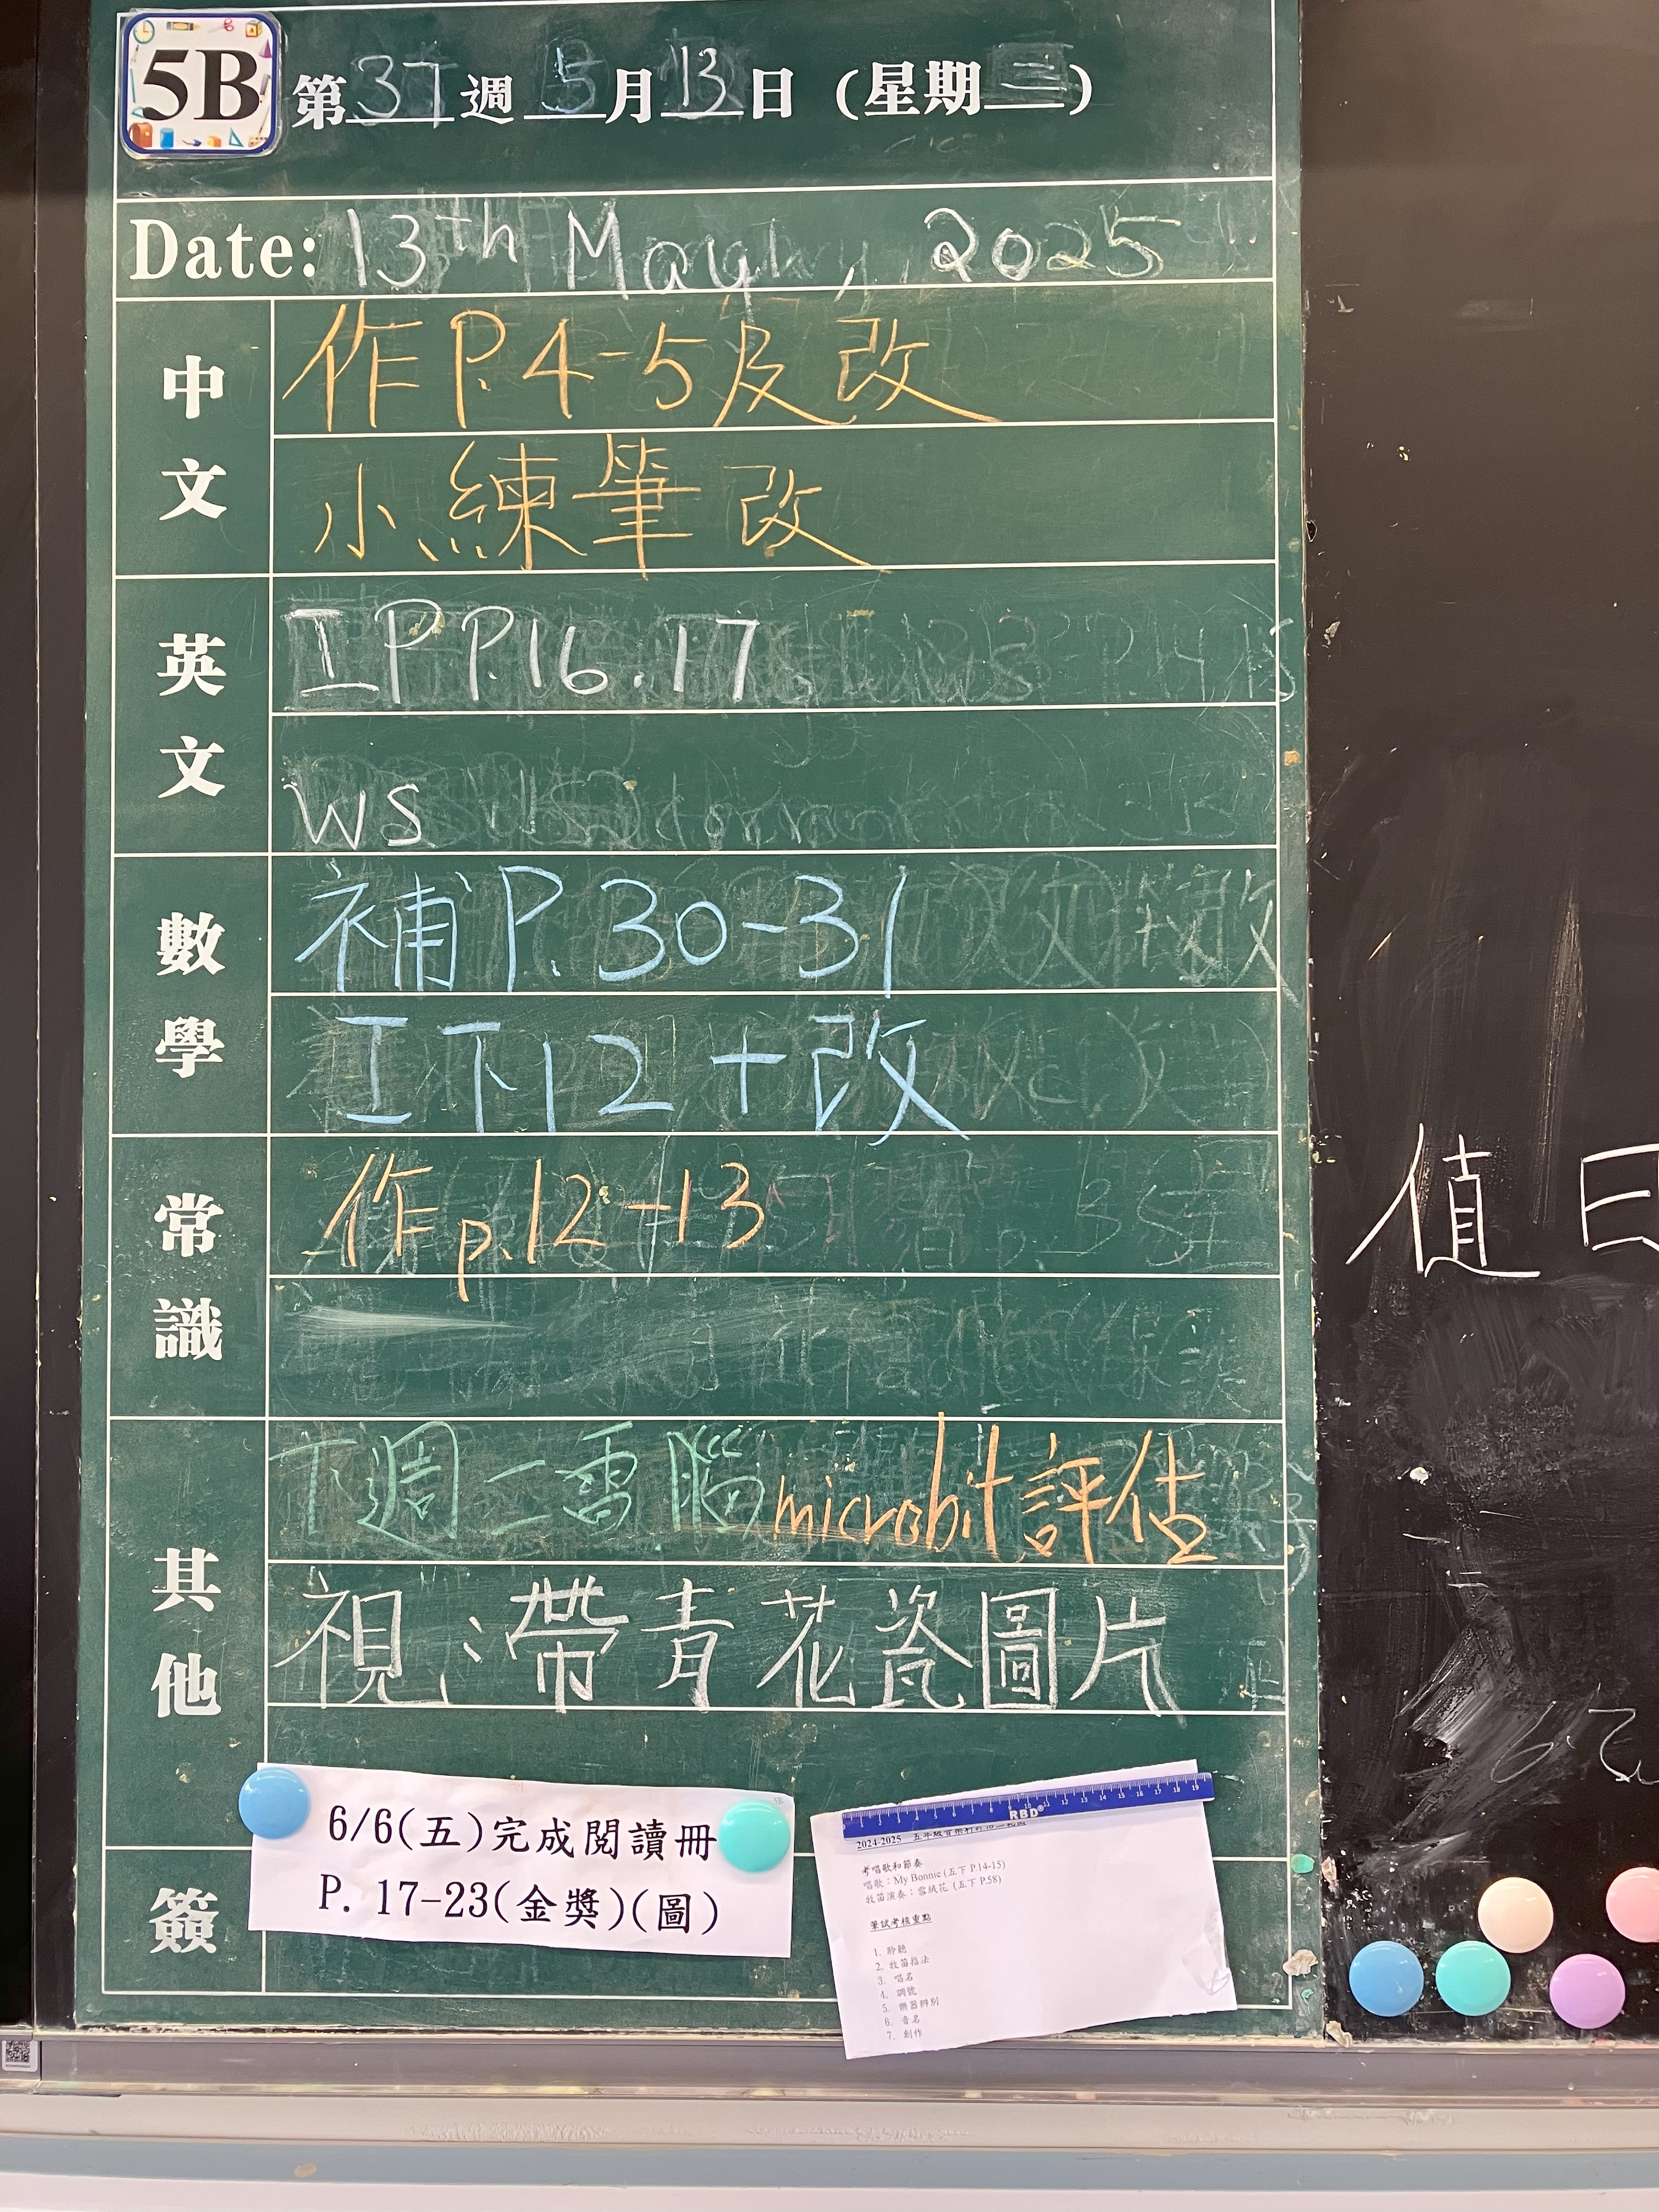 5B 第37週 5月13日 (星期二)
Date: 13th May, 2025
中文
作P.4-5及改
小練筆改
英文
IP P.16.17
WS
數學
補P.30-31
工下12+改
常識
作p.12-13
其他
下週二電腦microbit評估
視:帶青花瓷圖片
簽
6/6(五)完成閱讀冊
P. 17-23(金獎)(圖)
RBD
2024-2025
考唱歌和節奏
唱歌：My Bonnie (五下 P.14-15)
牧笛演奏：雪絨花 (五下 P.58)
筆試考核重點
1. 聆聽
2. 牧笛指法
3. 唱名
4. 調號
5. 樂器辨別
6. 音名
7. 創作
值日